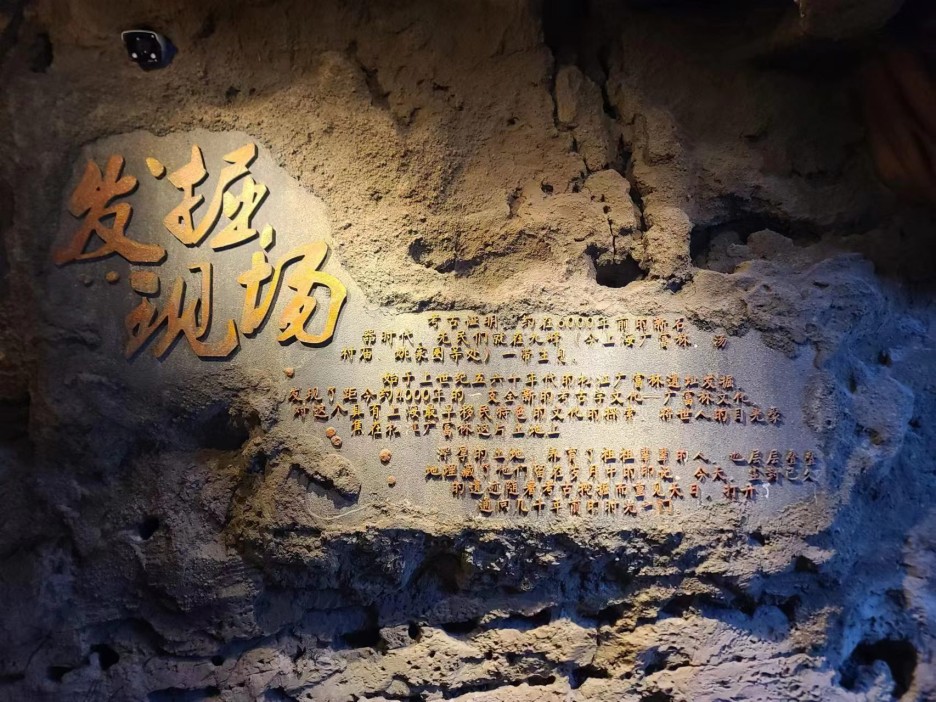 发掘
现场
考古证明，约在6000年前的新石
器时代，先民们就在九峰（今上海广富林、汤
村庙、姚家圈等处）一带生息。
始于上世纪五六十年代的松江广富林遗址发掘，
发现了距今约4000年的一支全新的考古学文化—广富林文化。
这具有上海最早移民特色的文化的揭示，将世人的目光聚
焦在松江广富林这片土地上
的土地，养育了祖祖辈辈的人，也层层叠叠
地埋藏了他们留在岁月中的印迹。今天，这些已久
的遗迹随着考古挖掘而重见天日，打开
通向几千年前的时光一门